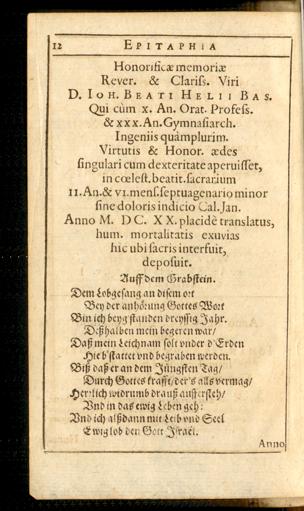 12 EPITAPHIA
Honorificæ memoriæ
Rever. & Clariss. Viri
D. IOH. BEATI HELII BAS.
Qui cùm x. An. Orat. Profess.
& xxx. An. Gymnasiarch.
Ingeniis quàmplurim.
Virtutis & Honor. ædes
singulari cum dexteritate aperuisset,
in cœlest. beatit. sacrarium
11. An. & VI. mens. septuagenario minor
sine doloris indicio Cal. Jan.
Anno M. DC. XX. placidè translatus,
hum. mortalitatis exuvias
hic ubi sacris interfuit,
deposuit.
Auff dem Grabstein.
Dem Lobgesang an disem ort
Bey der anhörung Gottes Wort
Bin ich beyg'standen dreyssig Jahr.
Deßhalben mein begeren war/
Daß mein Leichnam solt vnder d'Erden
Hie b'stattet vnd begraben werden.
Biß daß er an dem Jüngsten Tag/
Durch Gottes krafft/der's alls vermag/
Herrlich widrumb drauß aufersteh/
Vnd in das ewig Leben geh:
Vnd ich alßdann mit Leib vnd Seel
Ewig lob den Gott Israel.
Anno